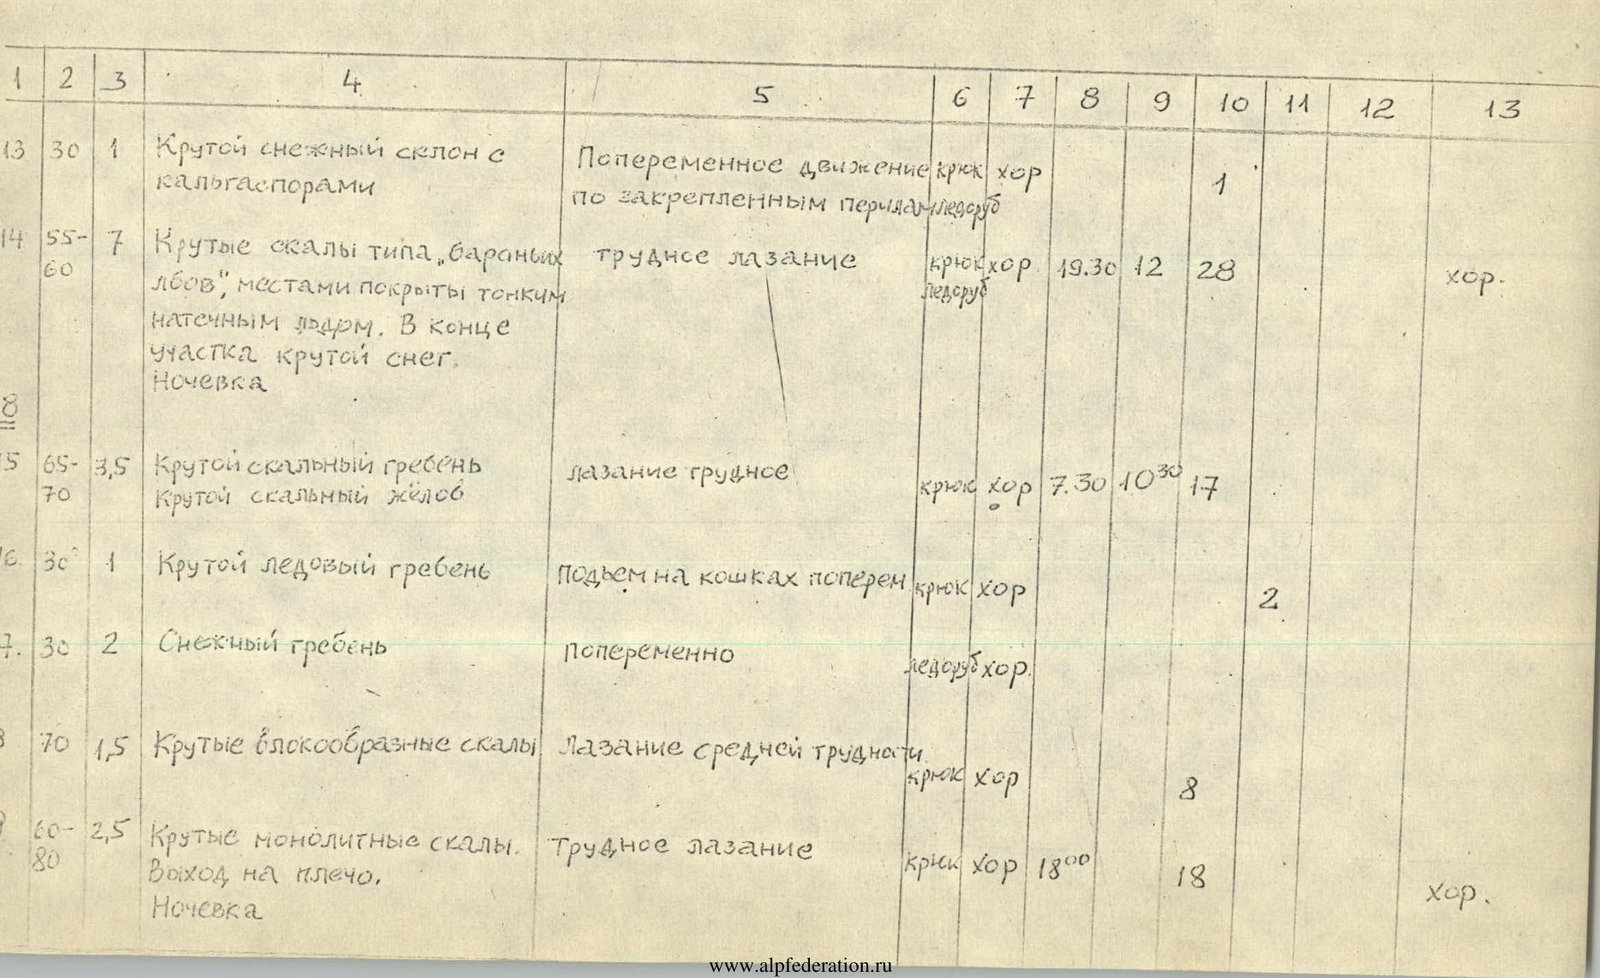 1 2 3 4 5 6 7 8 9 10 11 12 13
13 30 1 Крутой снежный склон с Попеременное движение крюк хор 1
кальгаспорами по закрепленным перилам ледоруб
14 55- 7 Крутые скалы типа „бараньих трудное лазание крюк хор. 19.30 12 28 хор.
60 лбов", местами покрыты тонким ледоруб
натечным льдом. В конце
участка крутой снег.
Ночевка
8
5 65- 3,5 Крутой скальный гребень лазание трудное крюк хор 7.30 10³⁰ 17
70 Крутой скальный жёлоб
6 30° 1 Крутой ледовый гребень подъем на кошках поперем крюк хор 2
7. 30 2 Снежный гребень попеременно ледоруб хор.
70 1,5 Крутые блокообразные скалы лазание средней трудности. крюк хор 8
60- 2,5 Крутые монолитные скалы. трудное лазание крюк хор 18⁰⁰ 18 хор.
80 Выход на плечо.
Ночевка
www.alpfederation.ru